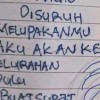 DISURUH
MELUPAKANMU
AKU AKAN KE
KELURAHAN
DULU
BUAT SURAT